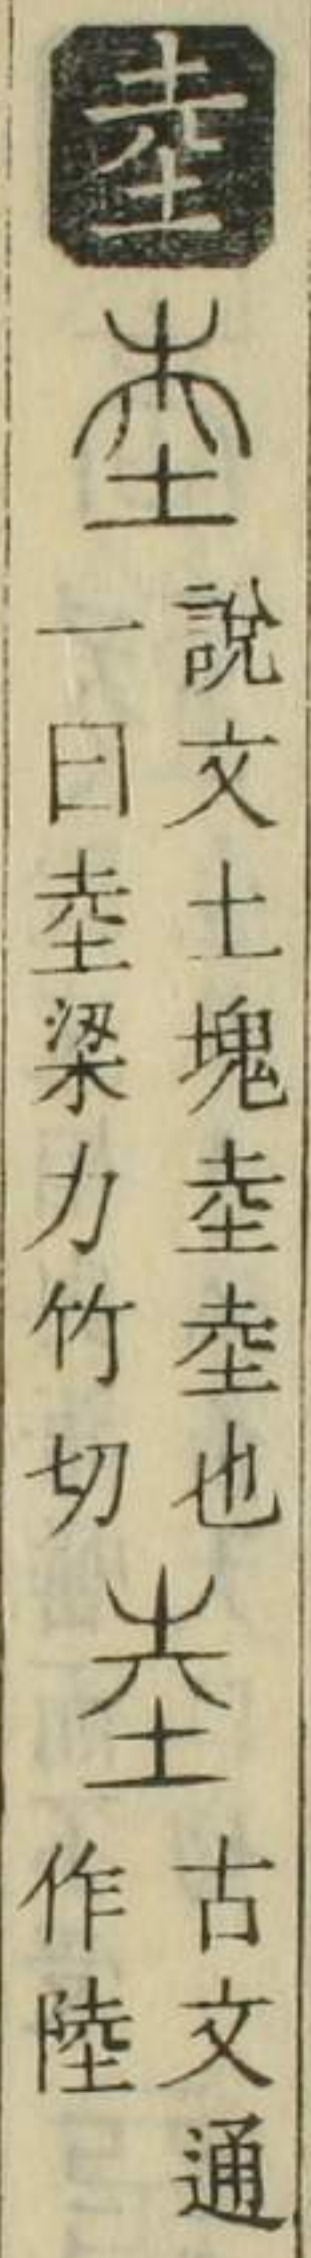 坴
坴
說文土塊坴坴也
一曰坴梁力竹切
坴
古文通
作陸